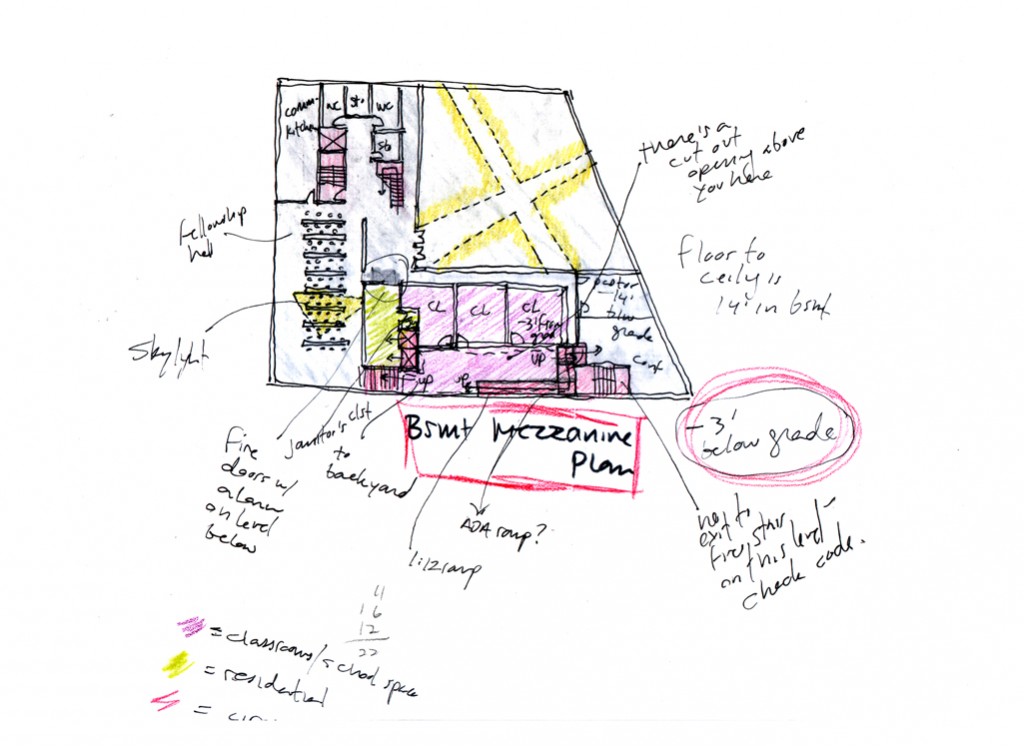 comm.
kitchen
WC
sto
WC
sto
there's a
cut out
opening above
you here
Fellowship
hall
floor to
ceily is
14' in bsmt
CL
CL
CL
-3' from
grade
-14'
blw
grade
conf
Skylight
UP
UP
UP
Bsmt Mezzanine
Plan
-3'
below grade
Fire
doors w/
alarm
on level
below
janitor's clst
to
backyard
ADA ramp?
1:12 ramp
no
exit to
fire stair
on this level -
check code.
4
16
12
22
= classrooms / school space
= residential
=